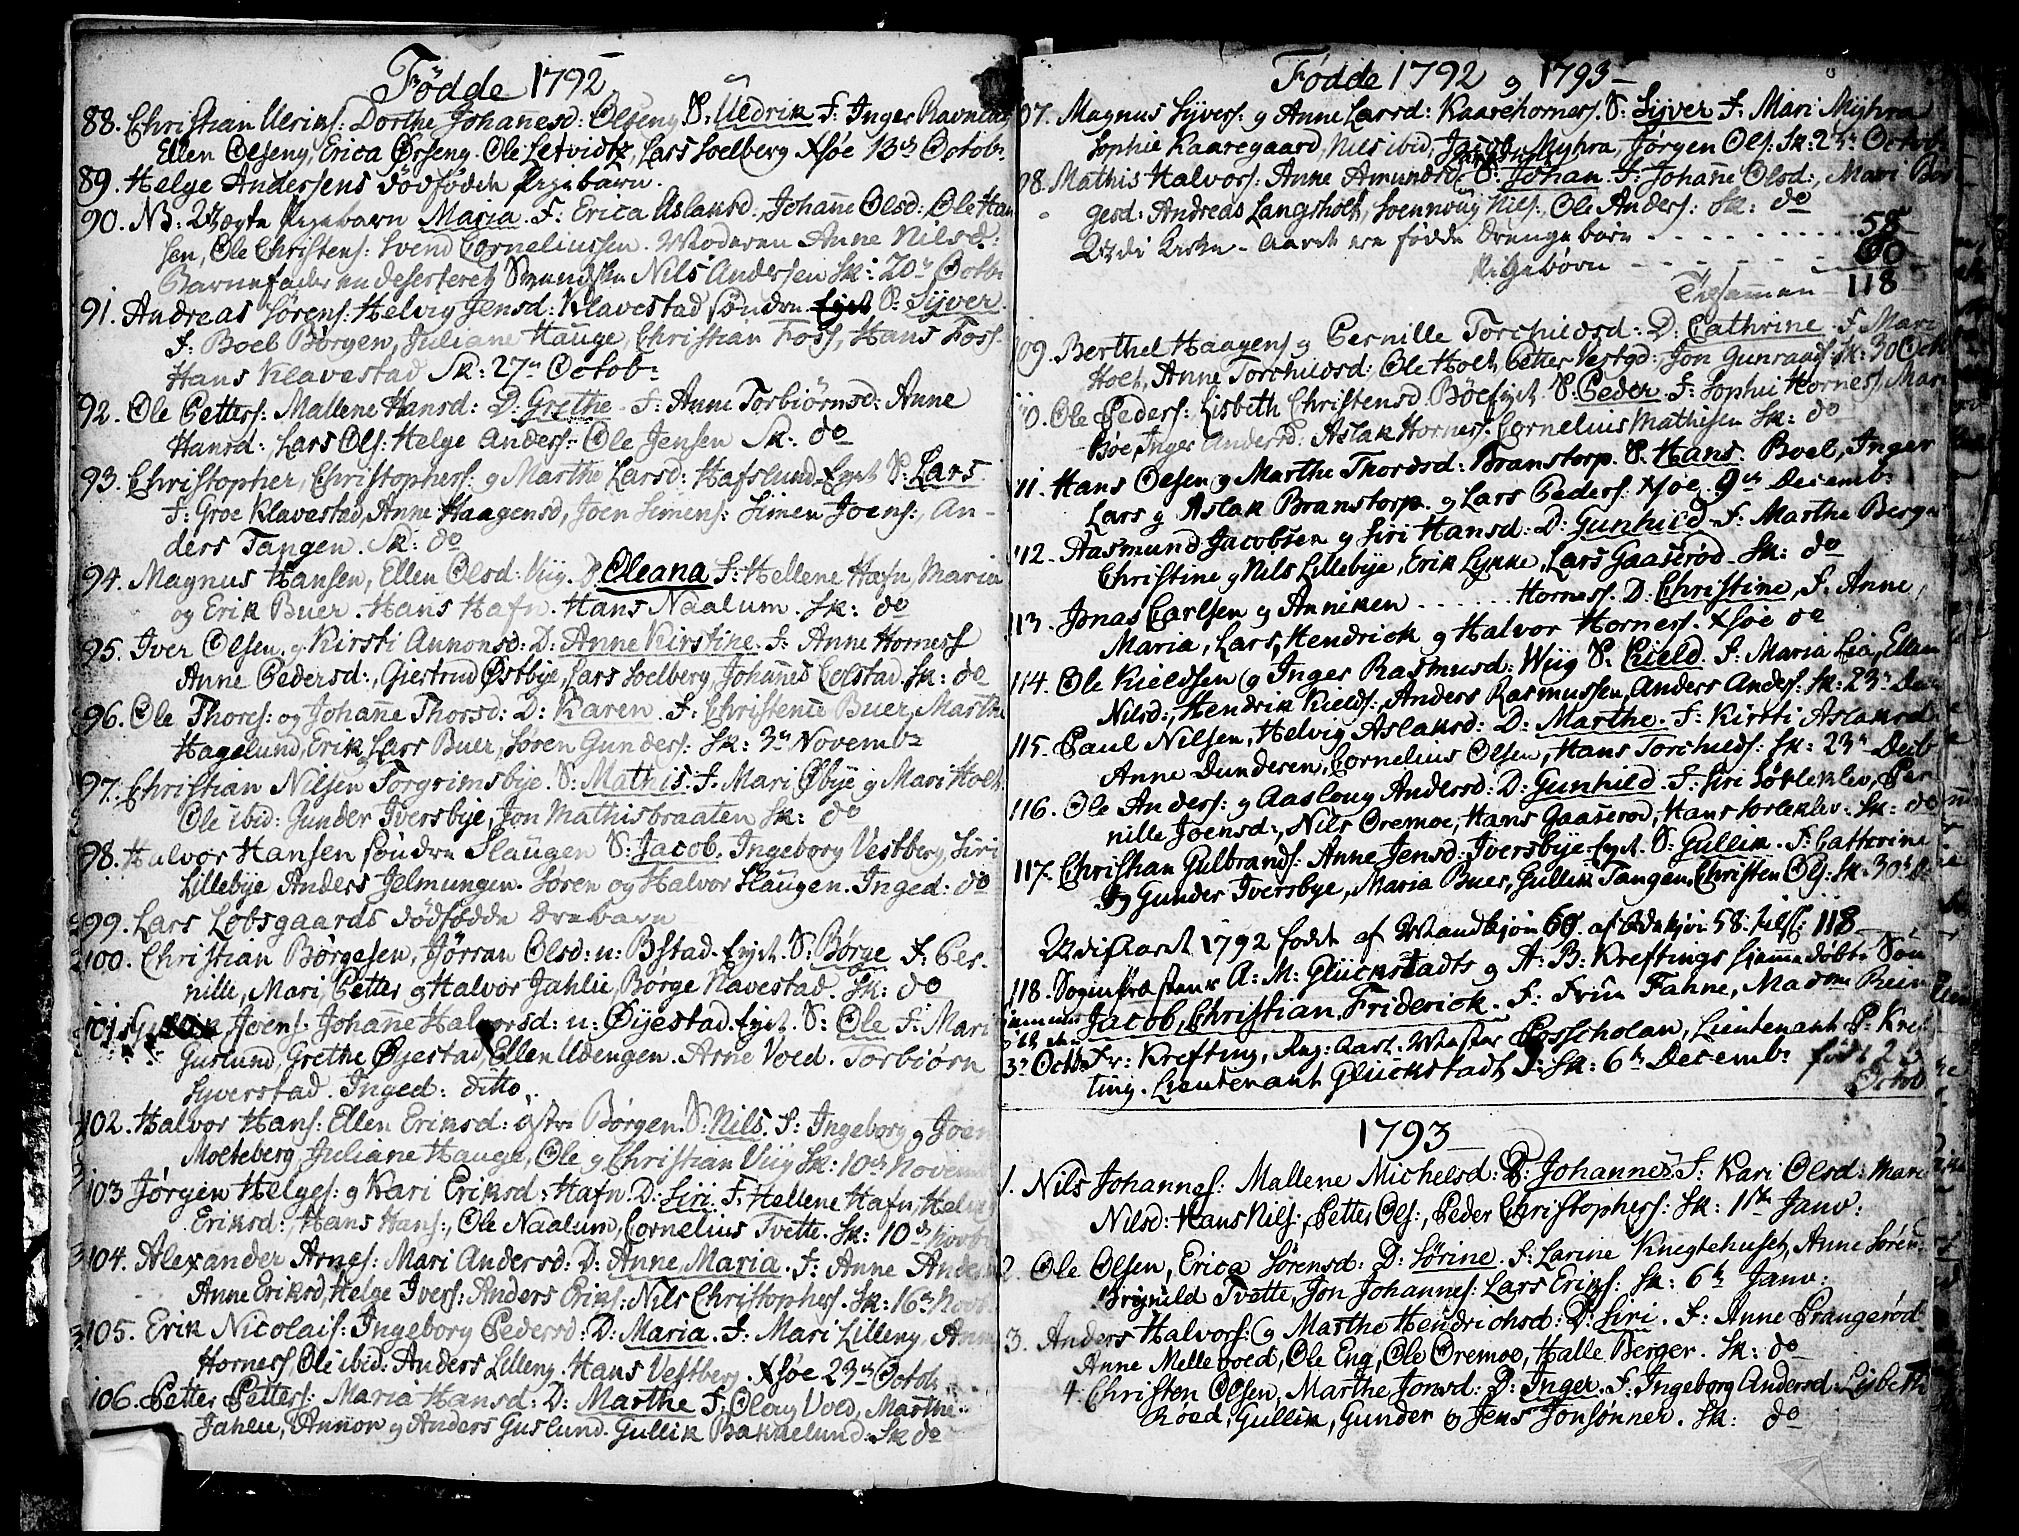 Födde 1792
88. Christian Ulriks: Dorthe Johanesd: Olseng S: Uldrik F: Inger Ravneng
Ellen Olseng, Erica Ørseng. Ole Letvidt, Lars Soelberg Xsøe 13de Octob:
89. Helge Andersens dödfödde Pigebarn.
90. NB: Uægte Pigebarn Maria. F: Erica Aslaksd, Johane Olsd: Ole Han
sen, Ole Christens: Svend Corneliussen. Moderen Anne Nilsd:
Barnefader en deserteret Nils Andersen Sk: 20de Octb:
91. Andreas Sörens: Helvig Jensd: Klavestad söndre Eyet S: Syver.
F: Boel Börgen, Juliane Hauge, Christian Foss, Hans Foss.
Hans Klavestad Sk: 27de Octob:
92. Ole Petters: Mallene Hansd: D: Grethe. F: Anne Torbiörnsd: Anne
Hansd: Lars Ols: Helge Anders: Ole Jensen Sk: do
93. Christopher, Christophers: og Marthe Larsd: Hafslund-Eyet S: Lars
F: Groe Klavestad, Anne Haagensd, Joen Simens: Simen Joens:, An-
ders Tangen. Sk: do
94. Magnus Hansen, Ellen Olsd: Viig. D Oleana F: Hellene Hafn, Maria
og Erik Buer. Hans Hafn. Hans Naalum. Sk: do
95. Iver Olsen, og Kirsti Amonsd: D: Anne Kirstine. F: Anne Horness
Anne Pedersd:, Giertrud Østbye, Lars Soelberg, Johanes Colstad. Sk: do
96. Ole Thores: og Johane Thorsd: D: Karen. F: Christence Buer, Marthe
Hagelund, Erik og Lars Buer, Sören Gunders: Sk: 3de Novemb:
97. Christian Nilsen Torgrimsbye. S: Mathis. F: Mari Øbye og Mari Holt
Ole ibid: Gunder Iversbye, Jon Mathisbraaten Sk: do
98. Halvor Hansen söndre Slaugen S: Jacob. Ingeborg Vestberg, Siri
Lillebye Anders Jelmungen. Sören og Halvor Slaugen. Inged: do
99. Lars Löbsgaards dödfödde Drebarn
100. Christian Börgesen, Jörran Olsd: n: Bystad-Eyet. S: Börge F: Per-
nille, Mari, Petter og Halvor Jahlie, Börge Navestad. Sk: do
101. Joens. Johane Halvorsd: n: Øyestad-Eyet. S: Ole F: Mari
Guslund, Grethe Øyestad Ellen Udengen. Arne Voed. Torbiörn
Syverstad. Inged: ditto.
102. Halvor Hans: Ellen Eriksd: østre Börgen. S: Nils. F: Ingeborg og Joen
Molteberg, Juliane Hauge, Ole og Christian Viig Sk: 10de Novemb
103 Jörgen Helges: og Kari Eriksd: Hafn. D: Siri. F: Hellene Hafn, Helvig
Eriksd:, Hans Hans:, Ole Naalum, Cornelius Tvette. Sk: 10de Novb:
104. Alexander Arnes: Mari Andersd: D: Anne Maria. F: Anne Andersd
Anne Eriksd, Helge Ivers: Anders Eriks: Nils Christophers. Sk: 16de Novb.
105. Erik Nicolais: Ingeborg Pedersd: D: Maria. F: Mari Lilleng. Anne
Horness Ole ibid: Anders Lilleng. Hans Vestberg. Xsøe 23de Octob:
106. Petter Petters: Maria Hansd: D: Marthe F: Olaug Voed, Marthe
Jahlie, Annor og Anders Guslund. Gullik Bakkelund: Sk do
Födde 1792 og 1793-
07. Magnus Syvers: og Anne Larsd: Kaarehorness. S: Syver F: Mari Myhra
Sophie Kaaregaard, Nils ibid, Jacob Myhra, Jörgen Ols: Sk: 25de Octob
08. Mathis Halvors: Anne Amundsd S: Johan F: Johane Olsd:, Mari Bör
gesd: Andreas Langsholt, Soennoug Nils:, Ole Anders: Sk: do
Udi Kirke-Aaret ere födde Drengebörn 58
Pigebörn 60
Tilsammen 118
109. Berthel Haagens og Pernille Torchildsd: D: Cathrine F Mari
Holt, Anne Torchildsd: Ole Holt, Petter Vestgd: Jon Gunraads: Sk: 30 Octb
10. Ole Peders: Lisbeth Christensd Böeeyet S: Peder. F: Sophie Horness, Mari
Böe, Inger Andersd: Aslak Horness: Cornelius Mathisen Sk: do
111. Hans Olsen og Marthe Thordsd: Branstorp. S: Hans. Boel, Inger
Lars og Aslak Branstorp. og Lars Peders: Xsøe. 9de Decemb:
112. Aasmund Jacobsen og Siri Hansd: D: Gunhild F: Marthe Berg
Christine og Nils Lillebye, Erik Lykke, Lars Gaaserød. Sk: do
113. Jonas Carlsen og Anniken . . . . . . Horness. D: Christine, F: Anne,
Maria, Lars, Hendrick og Halvor Horness. Xsøe do
114. Ole Kieldsen og Inger Rasmusd: Wiig S: Kield. F: Maria Lia, Ellen
Nilsd:, Hendrik Kields:, Anders Rasmussen, Anders Anders: Sk: 23de Dec
115. Paul Nilsen, Helvig Aslaksd: D: Marthe. F: Kirsti Aslaksd.
Anne Dunderen, Cornelius Olsen, Hans Torchilds: Sk: 23de Decb
116. Ole Anders: og Aasloug Andersd: D: Gunhild. F: Siri Sörlekløv, Per
nille Joensd:, Nils Oremoe, Hans Gaaserød, Hans Sorlekløv. Sk: do
117. Christian Gulbrands: Anne Jensd: Iversbye-Eyet. S: Gullik. F: Catherine
og Gunder Iversbye, Maria Buer, Gullik Tangen, Christen Ols: Sk: 30de De
Udi Aaret 1792 født af Mandkjön 60. af Qvdekjön 58. tils: 118
118. SognePræstens A: M: Glückstadts og A: B: Kreftings hiemedöbte Sön
Jacob, Christian, Friderick. F: Frue Fahne, Madme Rein
3de Octb Fr: Krefting, Reg: Aarl. Wester Posscholan, Lieutenant P: Kref
ting. Lieutenant Glückstadt J: Sk: 6te Decemb: födt 2de
Octob
1793
1. Nils Johannes: Mallene Michelsd: S: Johannes F: Kari Olsd: Mari
Nilsd: Hans Nils:, Petter Ols:, Peder Christophers: Sk: 1ste Janv:
2. Ole Olsen, Erica Sørensd: D: Sørine. F: Larine Knegtehuset, Anne Sörens:
Brynild Tvette, Jon Johannes: Lars Eriks: Sk: 6te Janv:
3. Anders Halvors: og Marthe Hendrichsd: D: Siri. F: Anne Prangerød
Anne Mellevoed, Ole Eng, Ole Oremoe, Halle Berger. Sk: do
4. Christen Olsen, Marthe Jonsd: D: Inger. F: Ingeborg Andersd: Lisbeth
Röed, Gullik, Gunder og Jens Jonsönner. Sk: do